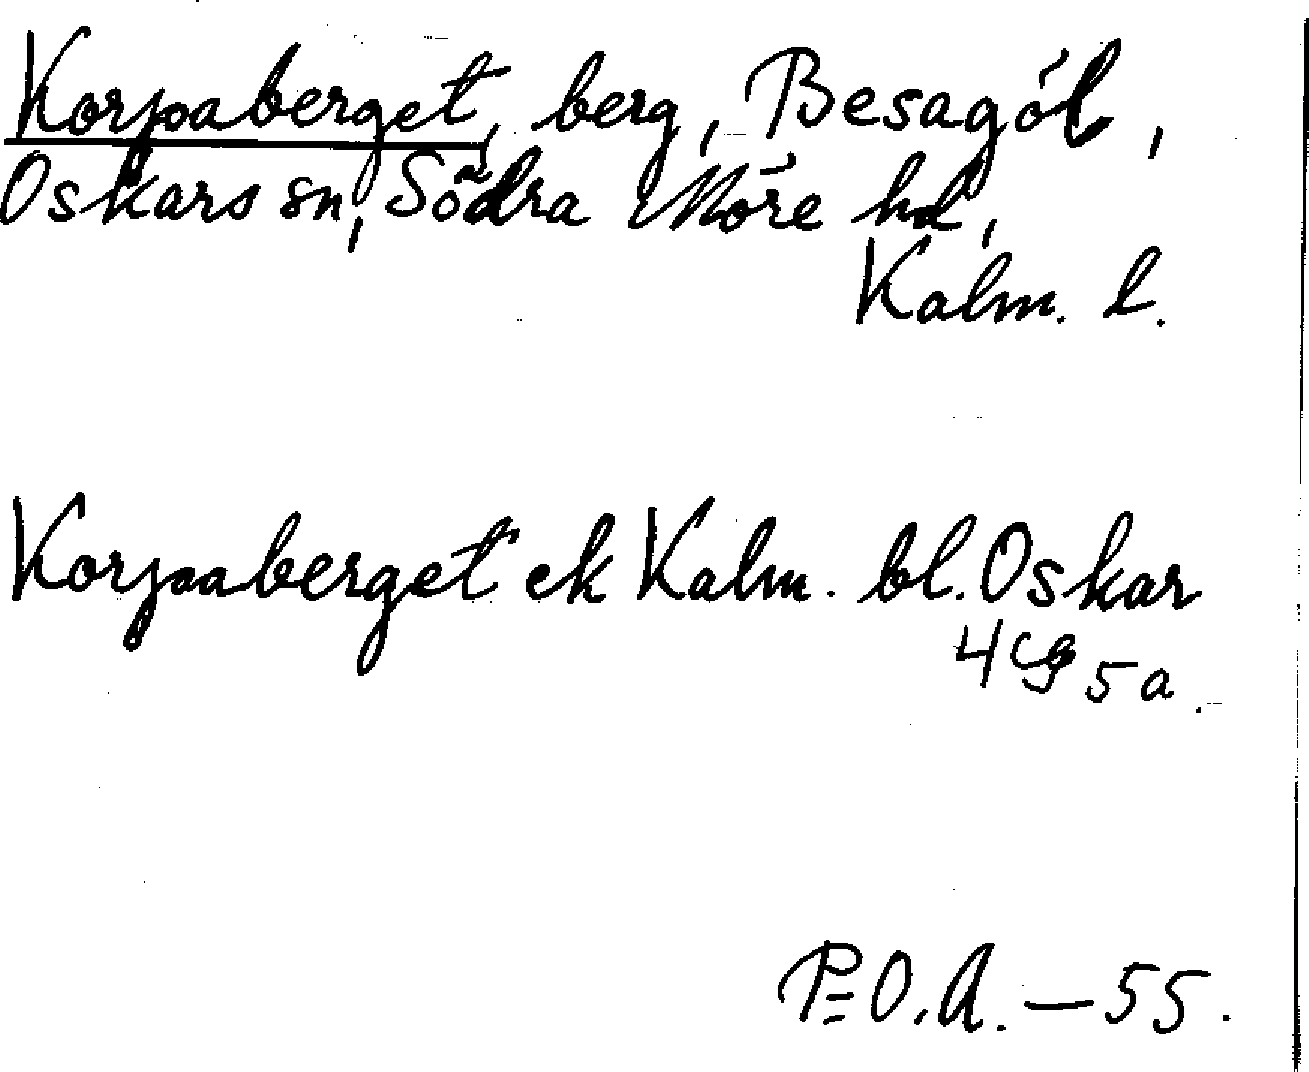 Korpaberget, berg, Besagöl,
Oskars sn, Södra Möre hd,
Kalm. l.
Korpaberget ek Kalm. bl. Oskar
4 G 5 a.
P=O.A. — 55.